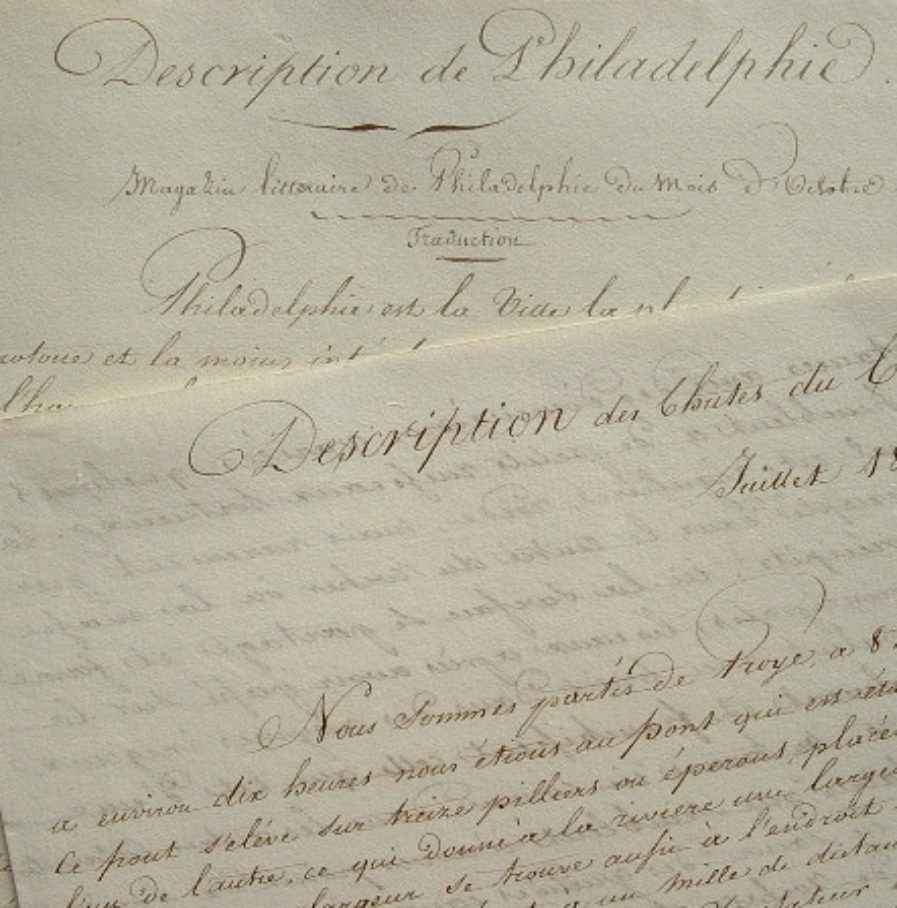 Description de Philadelphie.
Magazin litteraire de Philadelphie du mois d'Octbre
Traduction
Philadelphie est la Ville la
et la moins
Description des Chutes du
Juillet 18
Nous sommes partis de Troye, a 8
a environ dix heures nous étions au pont qui est
Ce pont s'elève sur treize pilliers ou éperons, placés
l'un de l'autre, ce qui donne a la riviere une large
largeur se trouve aussi à l'endroit
un mille de